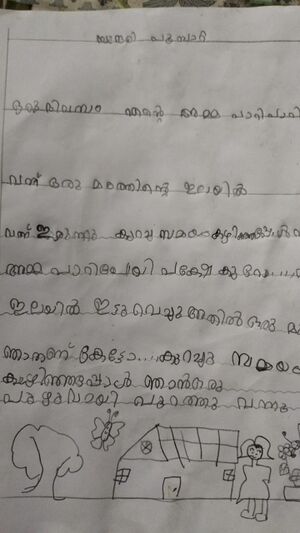 സുന്ദരി പൂമ്പാറ്റ
ഒരു ദിവസം എന്റെ അമ്മ പാറിപാറി
വന്ന് ഒരു മരത്തിന്റെ ഇലയിൽ
വന്ന് ഇരുന്നു കുറച്ചു സമയം കഴിഞ്ഞപ്പോൾ
അമ്മ പാറിപോയി പക്ഷേ കുറേ....
ഇലയിൽ ഇട്ടു വെച്ചു അതിൽ ഒരു
ഞാനാണ് കേട്ടോ.... കുറച്ചു സമയം
കഴിഞ്ഞപ്പോൾ ഞാൻ ഒരു
പുഴുവായി പുറത്തു വന്നു